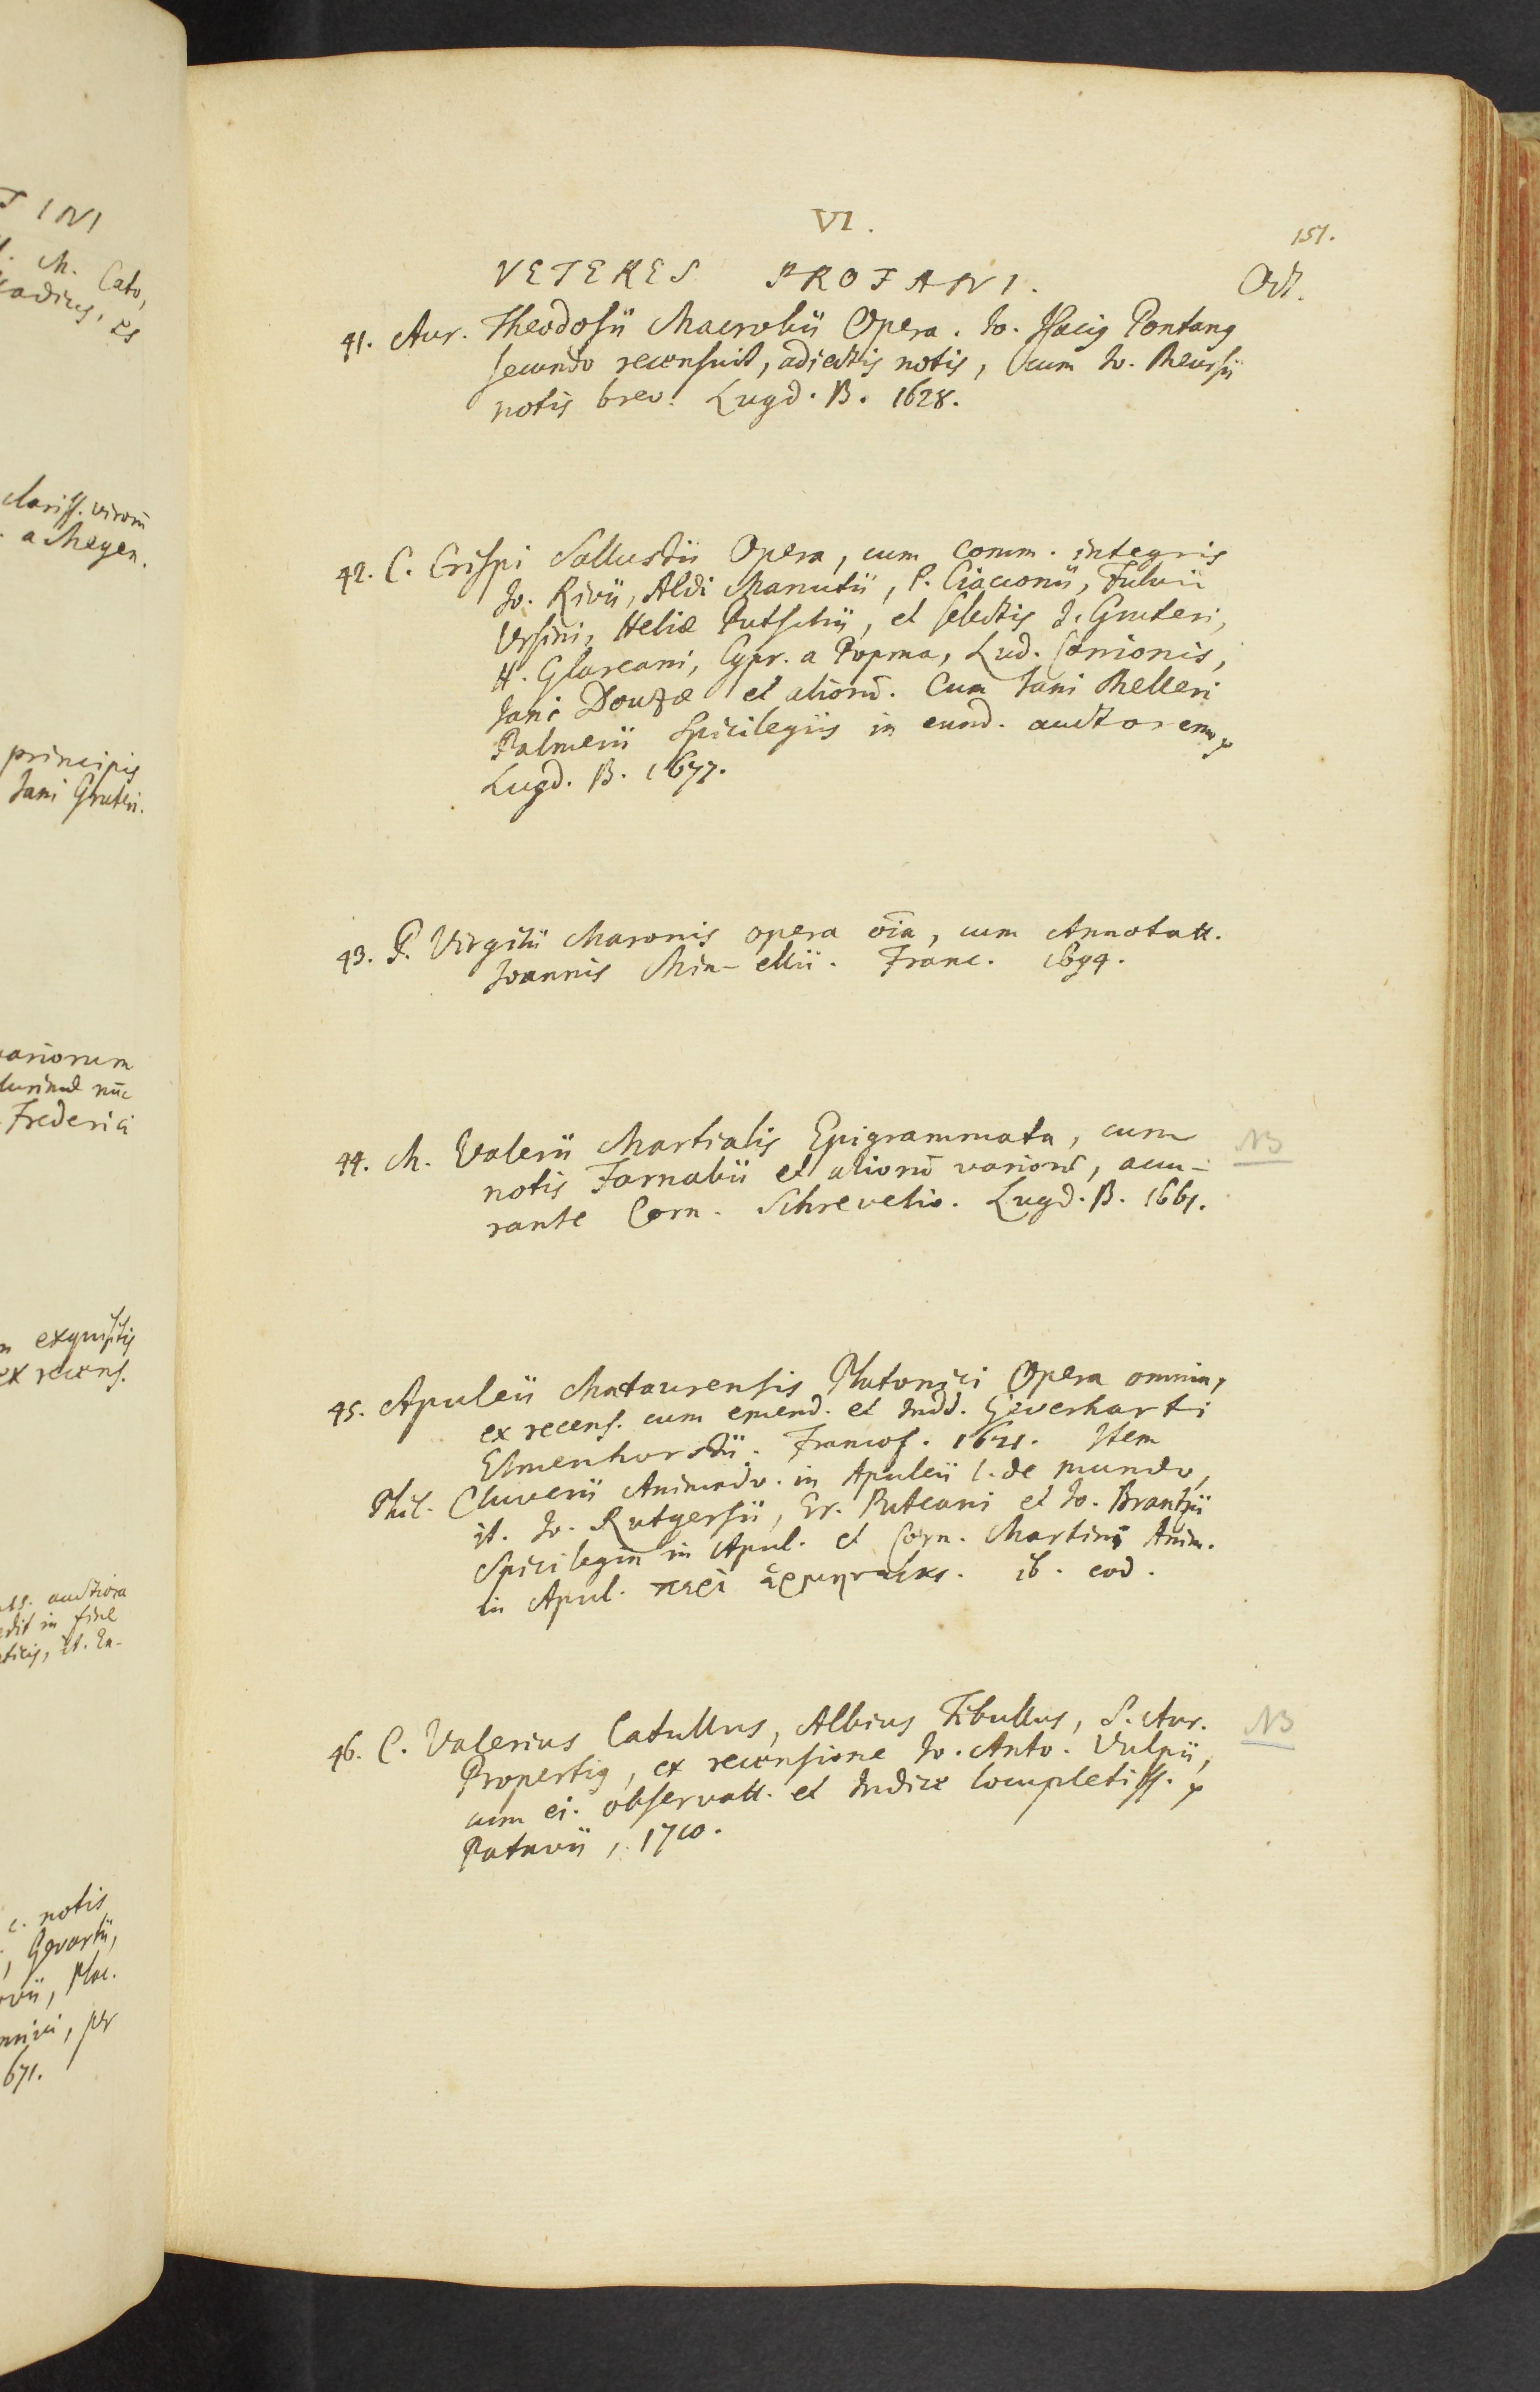 T INI
M. Cato,
clariss. virorũ
a Meyen.
principis
Jani Gruteri.
variorum
nũc
Frederici
exquisitis
ex recens.
auctiora
edit in fine
it. In-
c. notis
Gevartii,
Plac.
per
671.
VI.
151.
VETERES PROFANI.
Oct.
41. Aur. Theodosii Macrobii Opera. Jo. Isacig Pontang
secundo recensuit, adiectis notis, cum Jo. Meursii
notis brev. Lugd. B. 1628.
42. C. Crispi Sallustii Opera, cum Comm. integris
Jo. Rivii, Aldi Manutii, P. Ciacconii, Fulvii
Ursini, Heliæ Putschii, et selectis J. Gruteri,
H. Glareani, Cypr. a Popma, Lud. Carrionis,
Jani Douzæ et aliorũ. Cum Jani Melleri
Palmerii Spicilegiis in eund. auctorem
Lugd. B. 1677.
43. P. Virgilii Maronis opera oĩa, cum Annotatt.
Joannis Min-ellii. Franc. 1694.
44. M. Valerii Martialis Epigrammata, cum
NB
notis Farnabii et aliorũ variorũ, accu-
rante Corn. Schrevelio. Lugd. B. 1661.
45. Apuleii Mataurensis Platonici Opera omnia,
ex recens. cum emend. et Indd. Geverharti
Elmenhorstii. Francof. 1621. Item
Phil. Cluverii Animadv. in Apuleii l. de mundo,
it. Jo. Rutgersii, Er. Puteani et Jo. Brantzii
Spicilegia in Apul. et Corn. Martini Anim.
in Apul. περὶ ἑρμηνείας. ib. eod.
46. C. Valerius Catullus, Albius Tibullus, S. Aur.
NB
Propertig, ex recensione Jo. Anto. Vulpii,
cum ei. observatt. et Indice locupletiss.
Patavii, 1710.